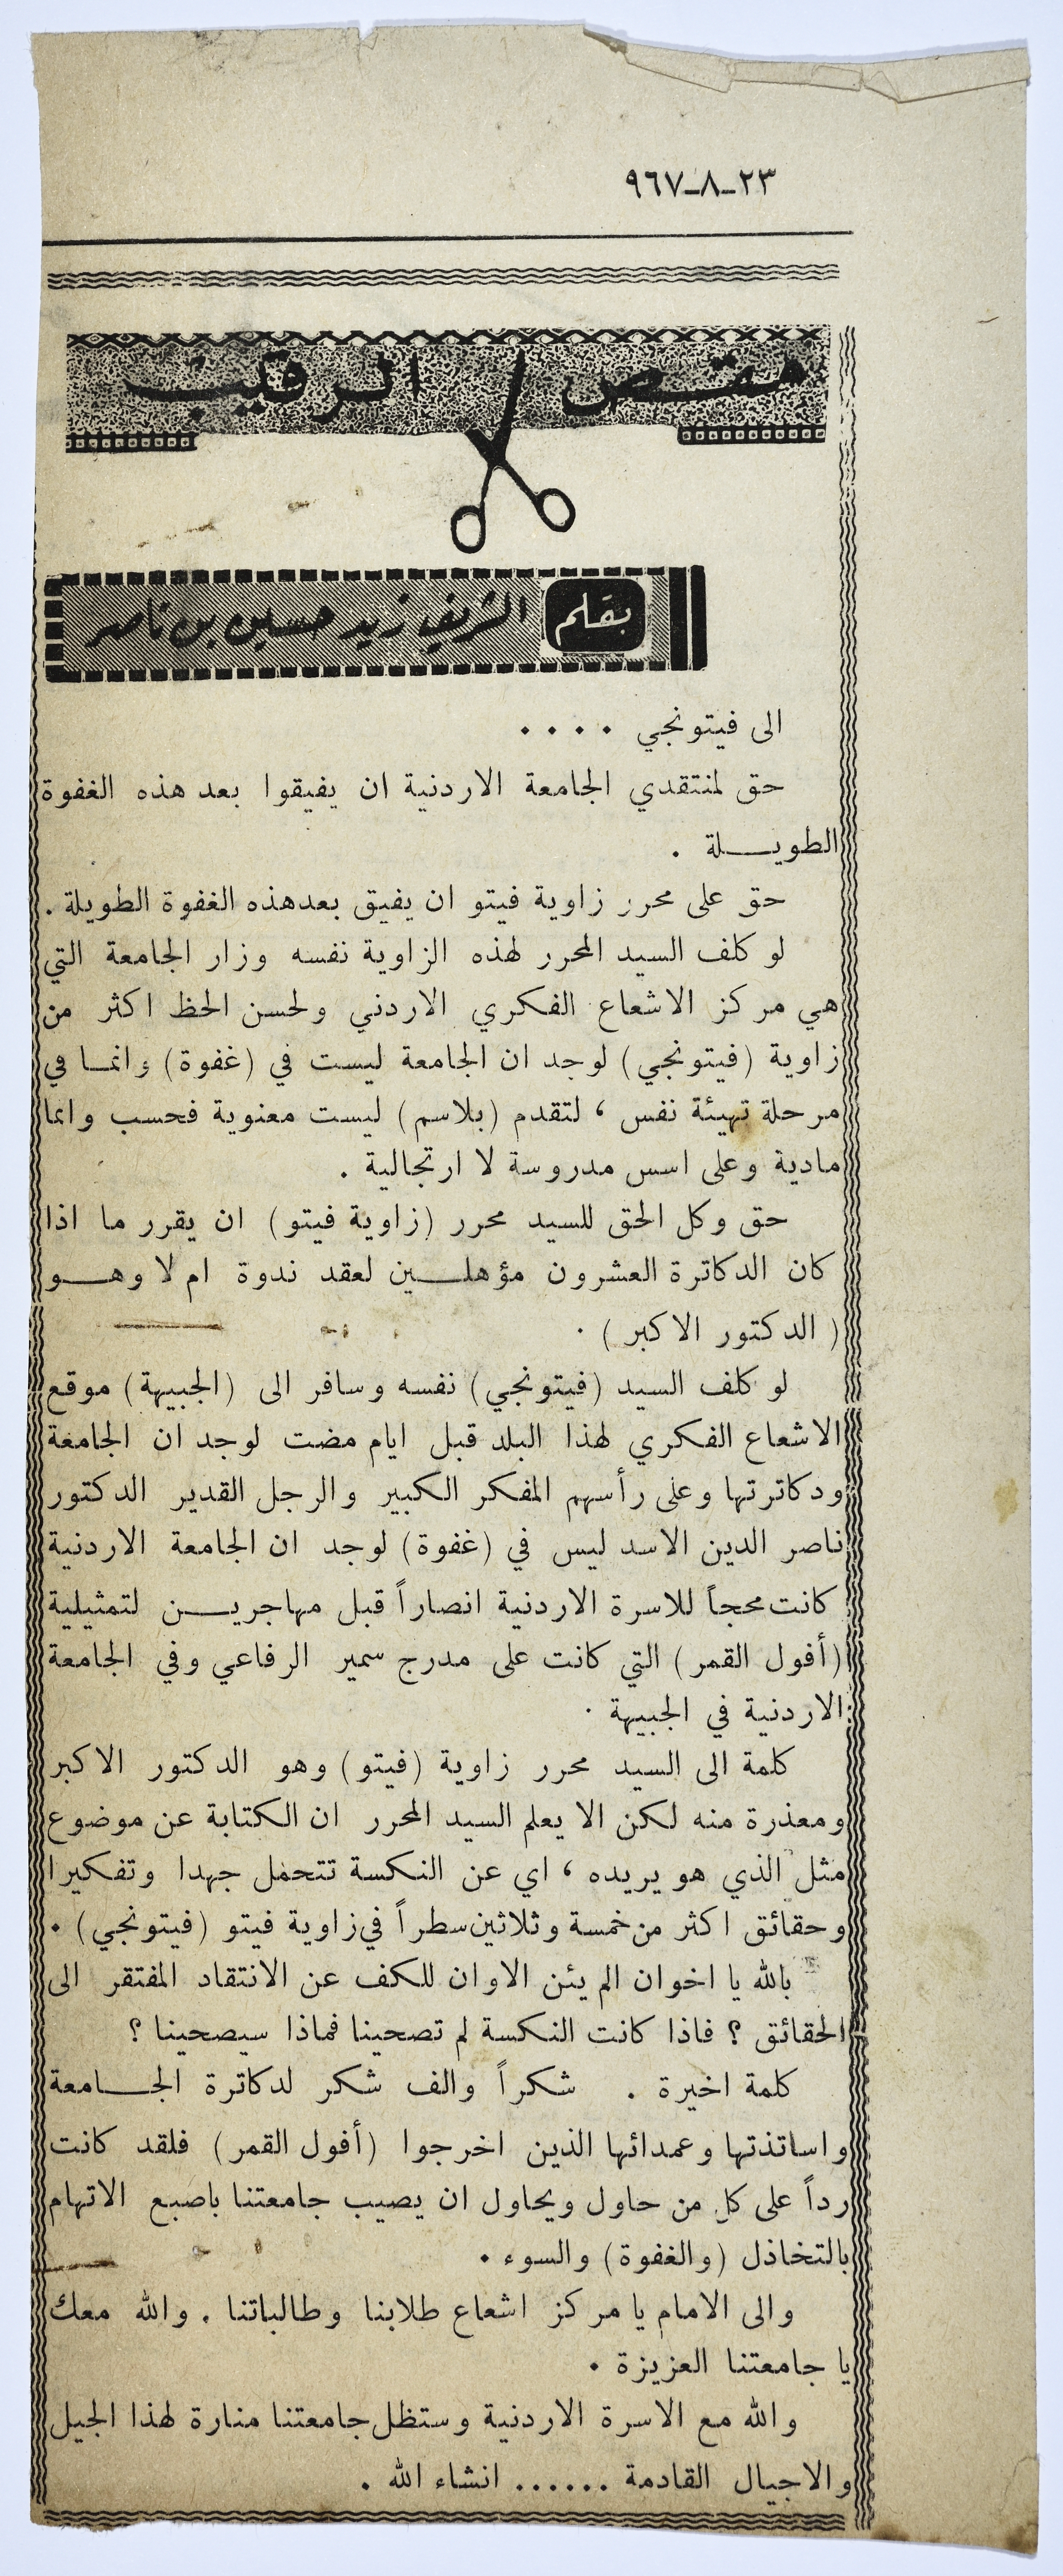 ٢٣-٨-٩٦٧
مقص الرقيب
بقلم الشريف زيد حسين بن ناصر
الى فيتونجي ....
حق لمنتقدي الجامعة الاردنية ان يفيقوا بعد هذه الغفوة
الطويلة .
حق على محرر زاوية فيتو ان يفيق بعد هذه الغفوة الطويلة .
لو كلف السيد المحرر لهذه الزاوية نفسه وزار الجامعة التي
هي مركز الاشعاع الفكري الاردني ولحسن الحظ اكثر من
زاوية (فيتونجي) لوجد ان الجامعة ليست في (غفوة) وانما في
مرحلة تهيئة نفس ، لتقدم (بلاسم) ليست معنوية فحسب وانما
مادية وعلى اسس مدروسة لا ارتجالية .
حق وكل الحق للسيد محرر (زاوية فيتو) ان يقرر ما اذا
كان الدكاترة العشرون مؤهلين لعقد ندوة ام لا وهو
( الدكتور الاكبر ) .
لو كلف السيد (فيتونجي) نفسه وسافر الى (الجبيهة) موقع
الاشعاع الفكري لهذا البلد قبل ايام مضت لوجد ان الجامعة
ودكاترتها وعلى رأسهم المفكر الكبير والرجل القدير الدكتور
ناصر الدين الاسد ليس في (غفوة) لوجد ان الجامعة الاردنية
كانت محجاً للاسرة الاردنية انصاراً قبل مهاجرين لتمثيلية
(أفول القمر) التي كانت على مدرج سمير الرفاعي وفي الجامعة
الاردنية في الجبيهة .
كلمة الى السيد محرر زاوية (فيتو) وهو الدكتور الاكبر
ومعذرة منه لكن الا يعلم السيد المحرر ان الكتابة عن موضوع
مثل الذي هو يريده ، اي عن النكسة تتحمل جهدا وتفكيرا
وحقائق اكثر من خمسة وثلاثين سطراً في زاوية فيتو (فيتونجي) .
بالله يا اخوان الم يئن الاوان للكف عن الانتقاد المفتقر الى
الحقائق ؟ فاذا كانت النكسة لم تصحينا فماذا سيصحينا ؟
كلمة اخيرة . شكراً والف شكر لدكاترة الجامعة
واساتذتها وعمدائها الذين اخرجوا (أفول القمر) فلقد كانت
رداً على كل من حاول ويحاول ان يصيب جامعتنا باصبع الاتهام
بالتخاذل (والغفوة) والسوء .
والى الامام يا مركز اشعاع طلابنا وطالباتنا . والله معك
يا جامعتنا العزيزة .
والله مع الاسرة الاردنية وستظل جامعتنا منارة لهذا الجيل
والاجيال القادمة ...... انشاء الله .